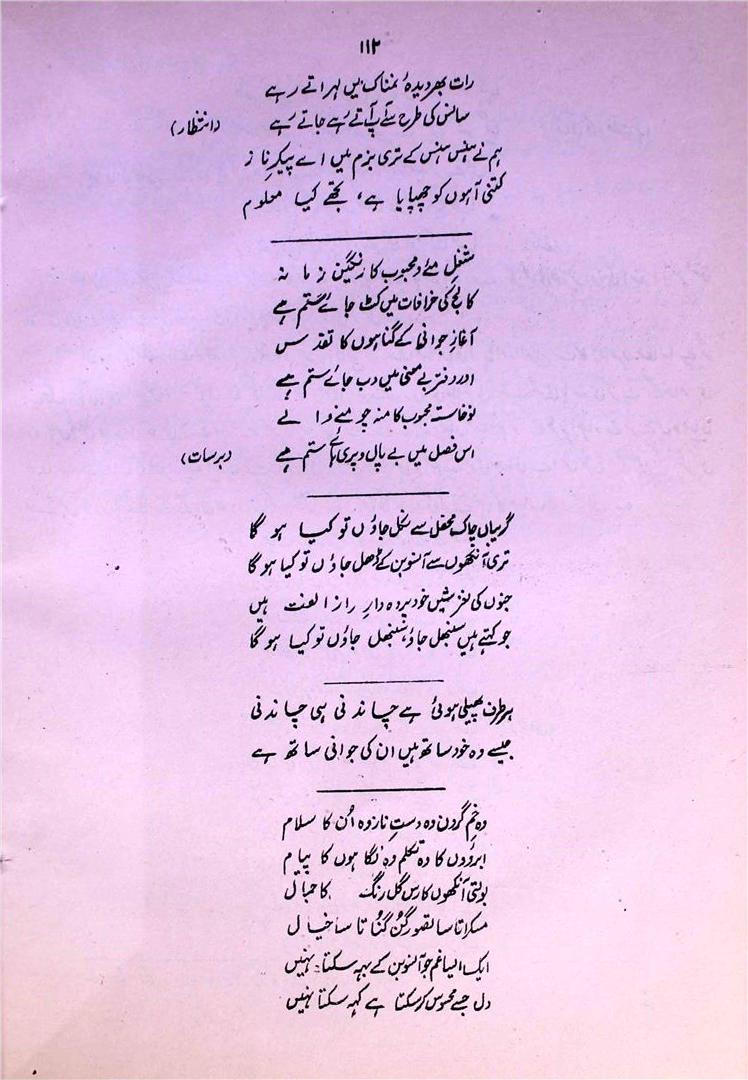 ۱۱۲
رات بھر دیدۂ نمناک میں لہراتے رہے
سانس کی طرح سے آپ آتے رہے جاتے رہے (انتظار)
ہم نے ہنس ہنس کے تری بزم میں اے پیکرِ ناز
کتنی آہوں کو چھپایا ہے، تجھے کیا معلوم
شغلِ مئے و محبوب کا رنگین زمانہ
کالج کی خرافات میں کٹ جائے ستم ہے
آغازِ جوانی کے گناہوں کا تقدس
اور دفترِ بے معنی میں دب جائے ستم ہے
نوخاستہ محبوب کا منہ چومنے والے
اس فصل میں بے بال و پری ہائے ستم ہے (برسات)
گریباں چاک محفل سے نکل جاؤں تو کیا ہوگا
تری آنکھوں سے آنسو بن کے ڈھل جاؤں تو کیا ہوگا
جنوں کی لغزشیں خود پردہ دارِ رازِ الفت ہیں
جو کہتے ہیں سنبھل جاؤ، سنبھل جاؤں تو کیا ہوگا
ہر طرف پھیلی ہوئی ہے چاندنی ہی چاندنی
جیسے وہ خود ساتھ ہیں ان کی جوانی ساتھ ہے
وہ خمِ گردن وہ دستِ ناز وہ اُن کا سلام
ابروؤں کا وہ تکلم وہ نگاہوں کا پیام
بولتی آنکھوں کا رس گل رنگ کا جمال
مسکراتا سا تصور گُن گُناتا سا خیال
ایک ایسا غم جو آنسو بن کے بہہ سکتا نہیں
دل جسے محسوس کر سکتا ہے کہہ سکتا نہیں